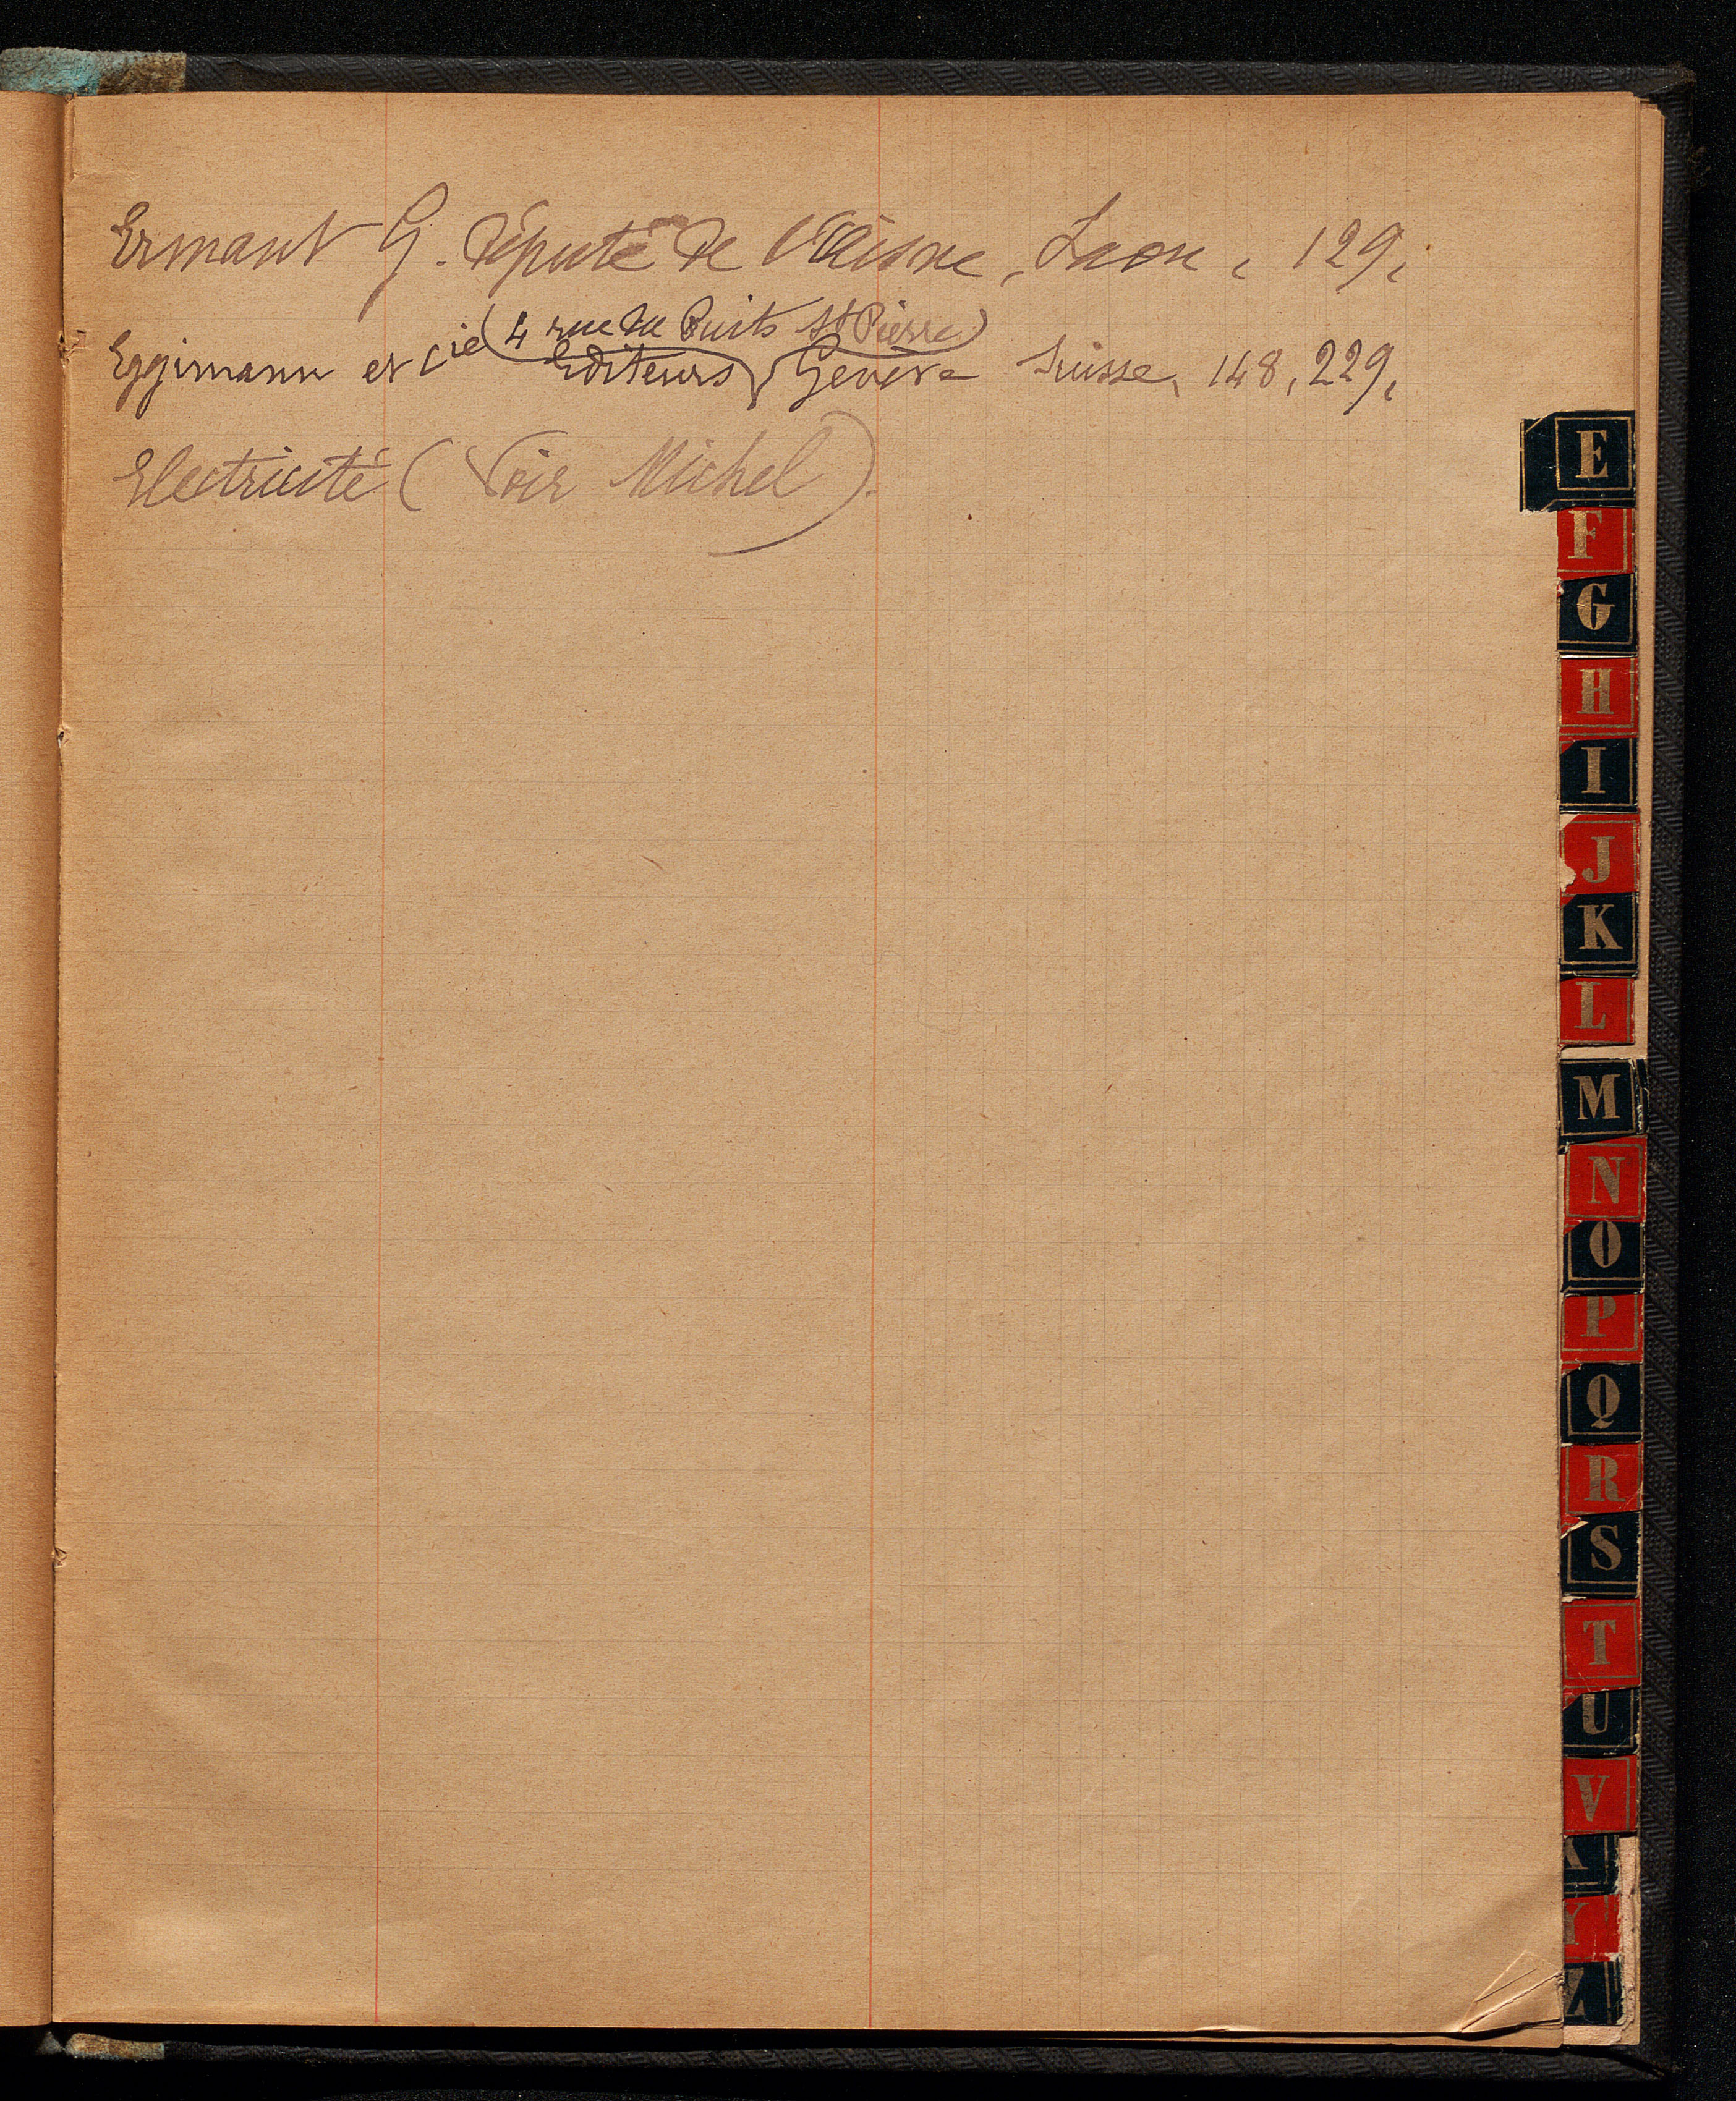 Ermant G. député de l'Aisne, Laon, 129,
(4 rue du Puits St Pierre)
Eggimann et Cie Editeurs Genève Suisse, 148, 229,
Electricité (Voir Michel).
E
F
G
H
I
J
K
L
M
N
O
P
Q
R
S
T
U
V
Y
Z